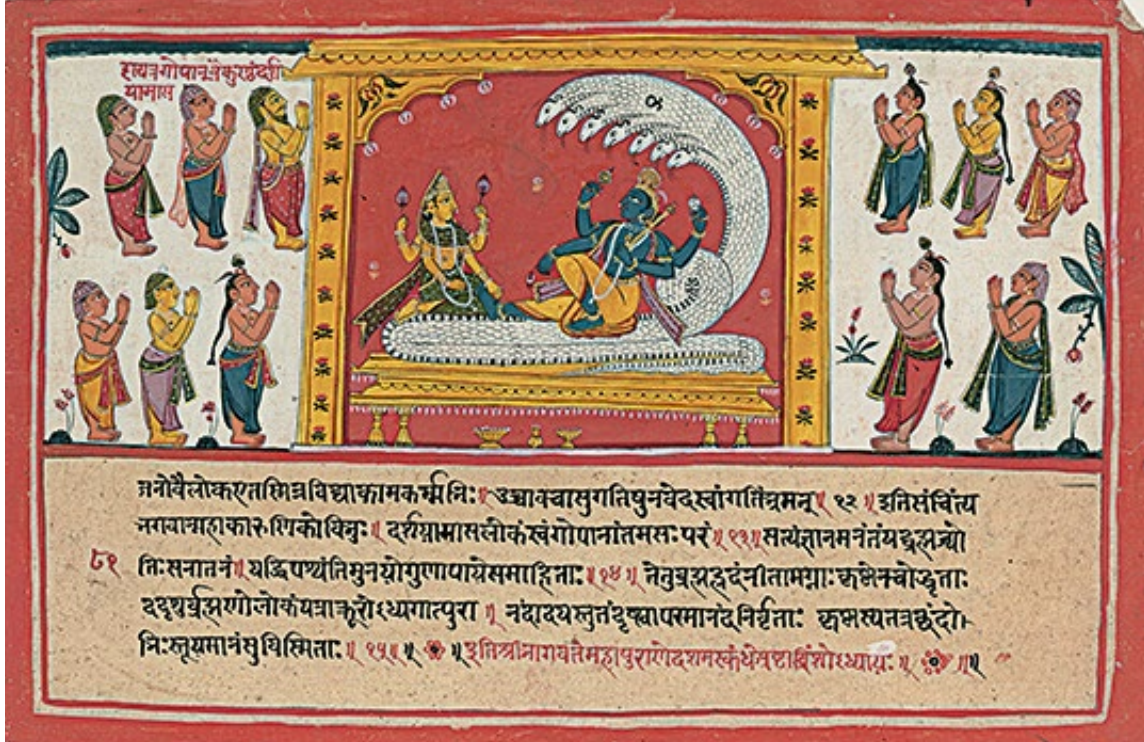 यामास
जनोवैलोकएतस्मिन्नविद्याकामकर्म्मभिः॥उच्चावचासुगतिषुनवेदस्वांगतिंभ्रमन्॥१२॥इतिसंचिंत्य
भगवान्महाकारुणिकोविभुः॥दर्शयामासलोकंस्वंगोपानांतमसःपरं॥१३॥सत्यंज्ञानमनंतंयद्ब्रह्मज्यो
८१
तिःसनातनं॥यद्धिपश्यंतिमुनयोगुणापायेसमाहिताः॥१४॥तेतुब्रह्मह्रदंनीतामग्नाःकृष्णेनचोद्धृताः
ददृशुर्ब्रह्मणोलोकंयत्राक्रूरोऽध्यगात्पुरा॥नंदादयस्तुतंदृष्ट्वापरमानंदनिर्वृताः कृष्णस्यतत्रछंदो
भिःस्तूयमानंसुविस्मिताः॥१५॥॥इतिश्रीभागवतेमहापुराणेदशमस्कंधेअष्टाविंशोऽध्यायः॥॥